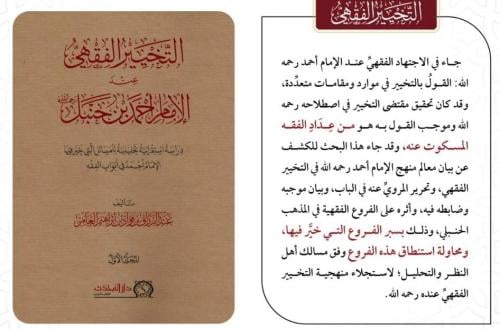 التخيير الفقهي
جاء في الاجتهاد الفقهيِّ عند الإمام أحمد رحمه
الله: القولُ بالتخيير في موارد ومقامات متعدِّدة،
وقد كان تحقيق مقتضى التخيير في اصطلاحه رحمه
الله وموجب القول به هو من عِدَادِ الفقه
المسكوت عنه، وقد جاء هذا البحث للكشف
عن بيان معالم منهج الإمام أحمد رحمه الله في التخيير
الفقهي، وتحرير المرويِّ عنه في الباب، وبيان موجبه
وضابطه فيه، وأثره على الفروع الفقهية في المذهب
الحنبلي، وذلك بسبر الفروع التي خيَّر فيها،
ومحاولة استنطاق هذه الفروع وفق مسالك أهل
النظر والتحليل؛ لاستجلاء منهجية التخيير
الفقهيِّ عنده رحمه الله.
التخيير الفقهي
عند
الإمام أحمد بن حنبل
دراسة استقرائية تحليلية للمسائل التي خير فيها
الإمام أحمد في أبواب الفقه
تأليف
عبد الرزاق بن هوادين إبراهيم العامر
المجلد الأول
دار المحدث